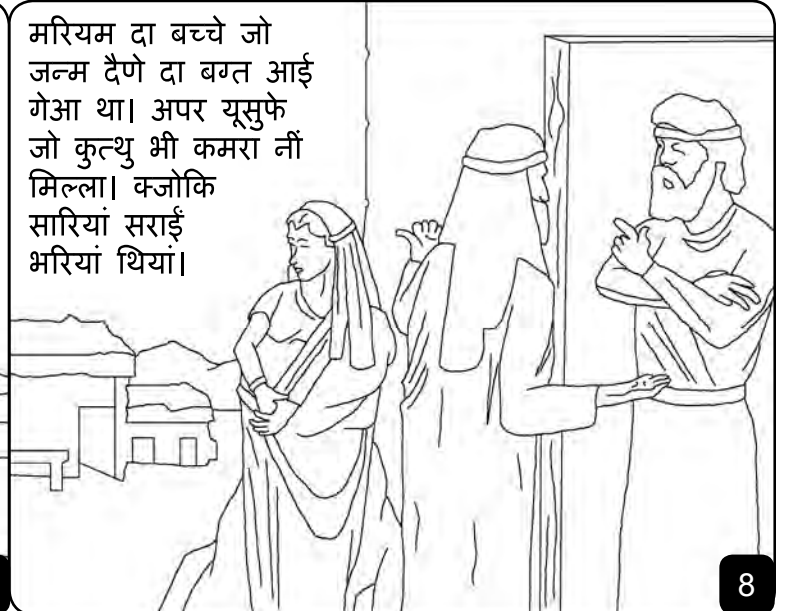 मरियम दा बच्चे जो
जन्म दैणे दा बग्त आई
गेआ था। अपर यूसुफे
जो कुत्थु भी कमरा नीं
मिल्ला। क्जोकि
सारियां सराईं
भरियां थियां।
8